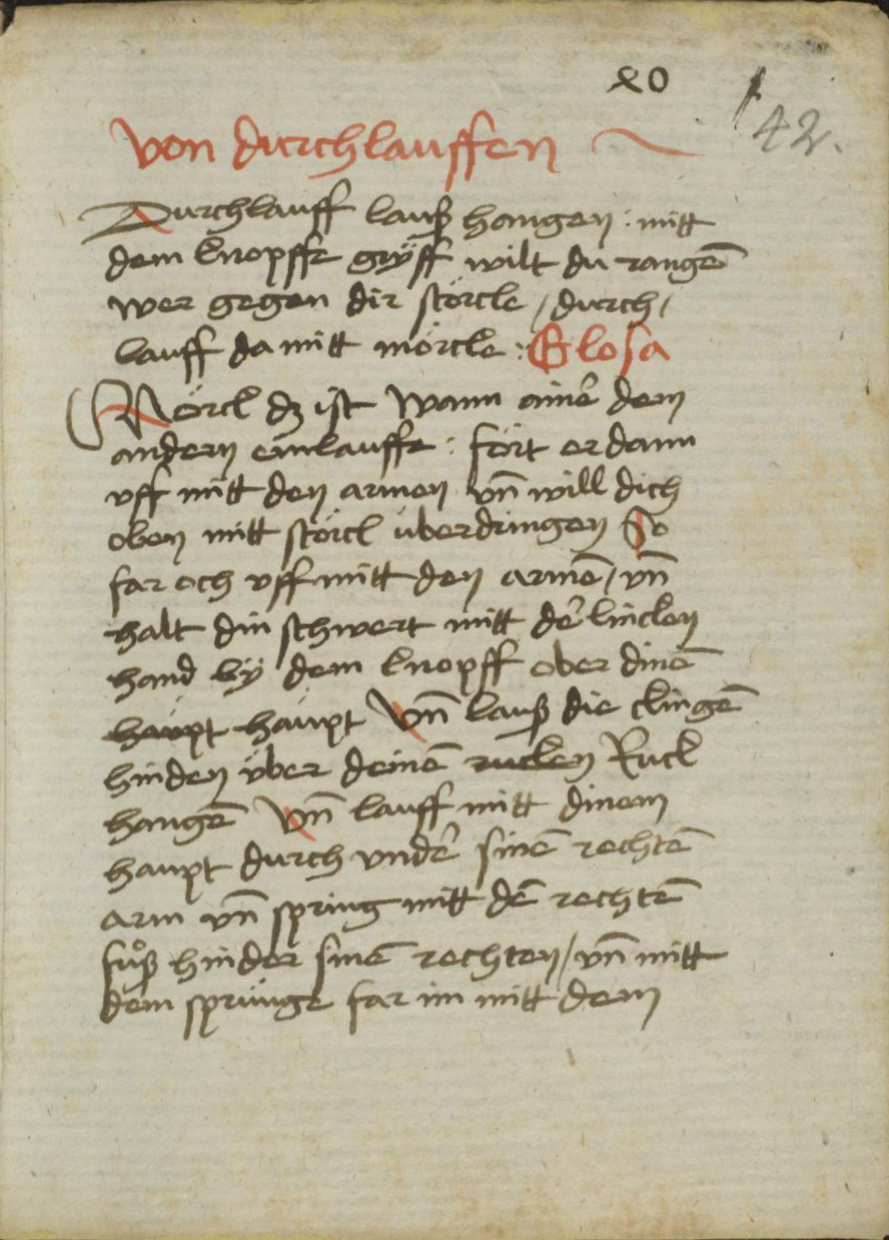 xo
42.
von durchlauffen
Durchlauff lauß hangen : mitt
dem knopffe gryff wilt du rangē
wer gegen dir störcke / durch /
lauff da mitt mörcke : Glosa
Mörck dz ist Wann ainē dem
andern einlauffe : fört er dann
uff mitt den armen vn̄ will dich
oben mitt störck überdringen So
far och vff mitt den armē / vn̄
halt din schwert mitt dē lincken
hand by dem knopff ober dinē
haüpt haüpt Vn̄ lauß die clingē
hinden über deinē rucken Ruck
hangē Vn̄ lauff mitt dinem
haupt durch vndē sinē rechtē
arm vn̄ spring mitt dē rechtē
fůß hinder sinē rechten / vn̄ mitt
dem sprünge far im mitt dem